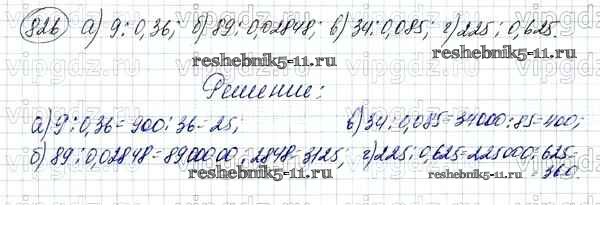 826 а) 9:0,36; б) 89:0,02848; в) 34:0,085; г) 225:0,625.
reshebnik5-11.ru
Решение:
а) 9:0,36=900:36=25; в) 34:0,085=34000:85=400;
б) 89:0,02848=8900000:2848=3125; г) 225:0,625=225000:625=
=360.
reshebnik5-11.ru
reshebnik5-11.ru